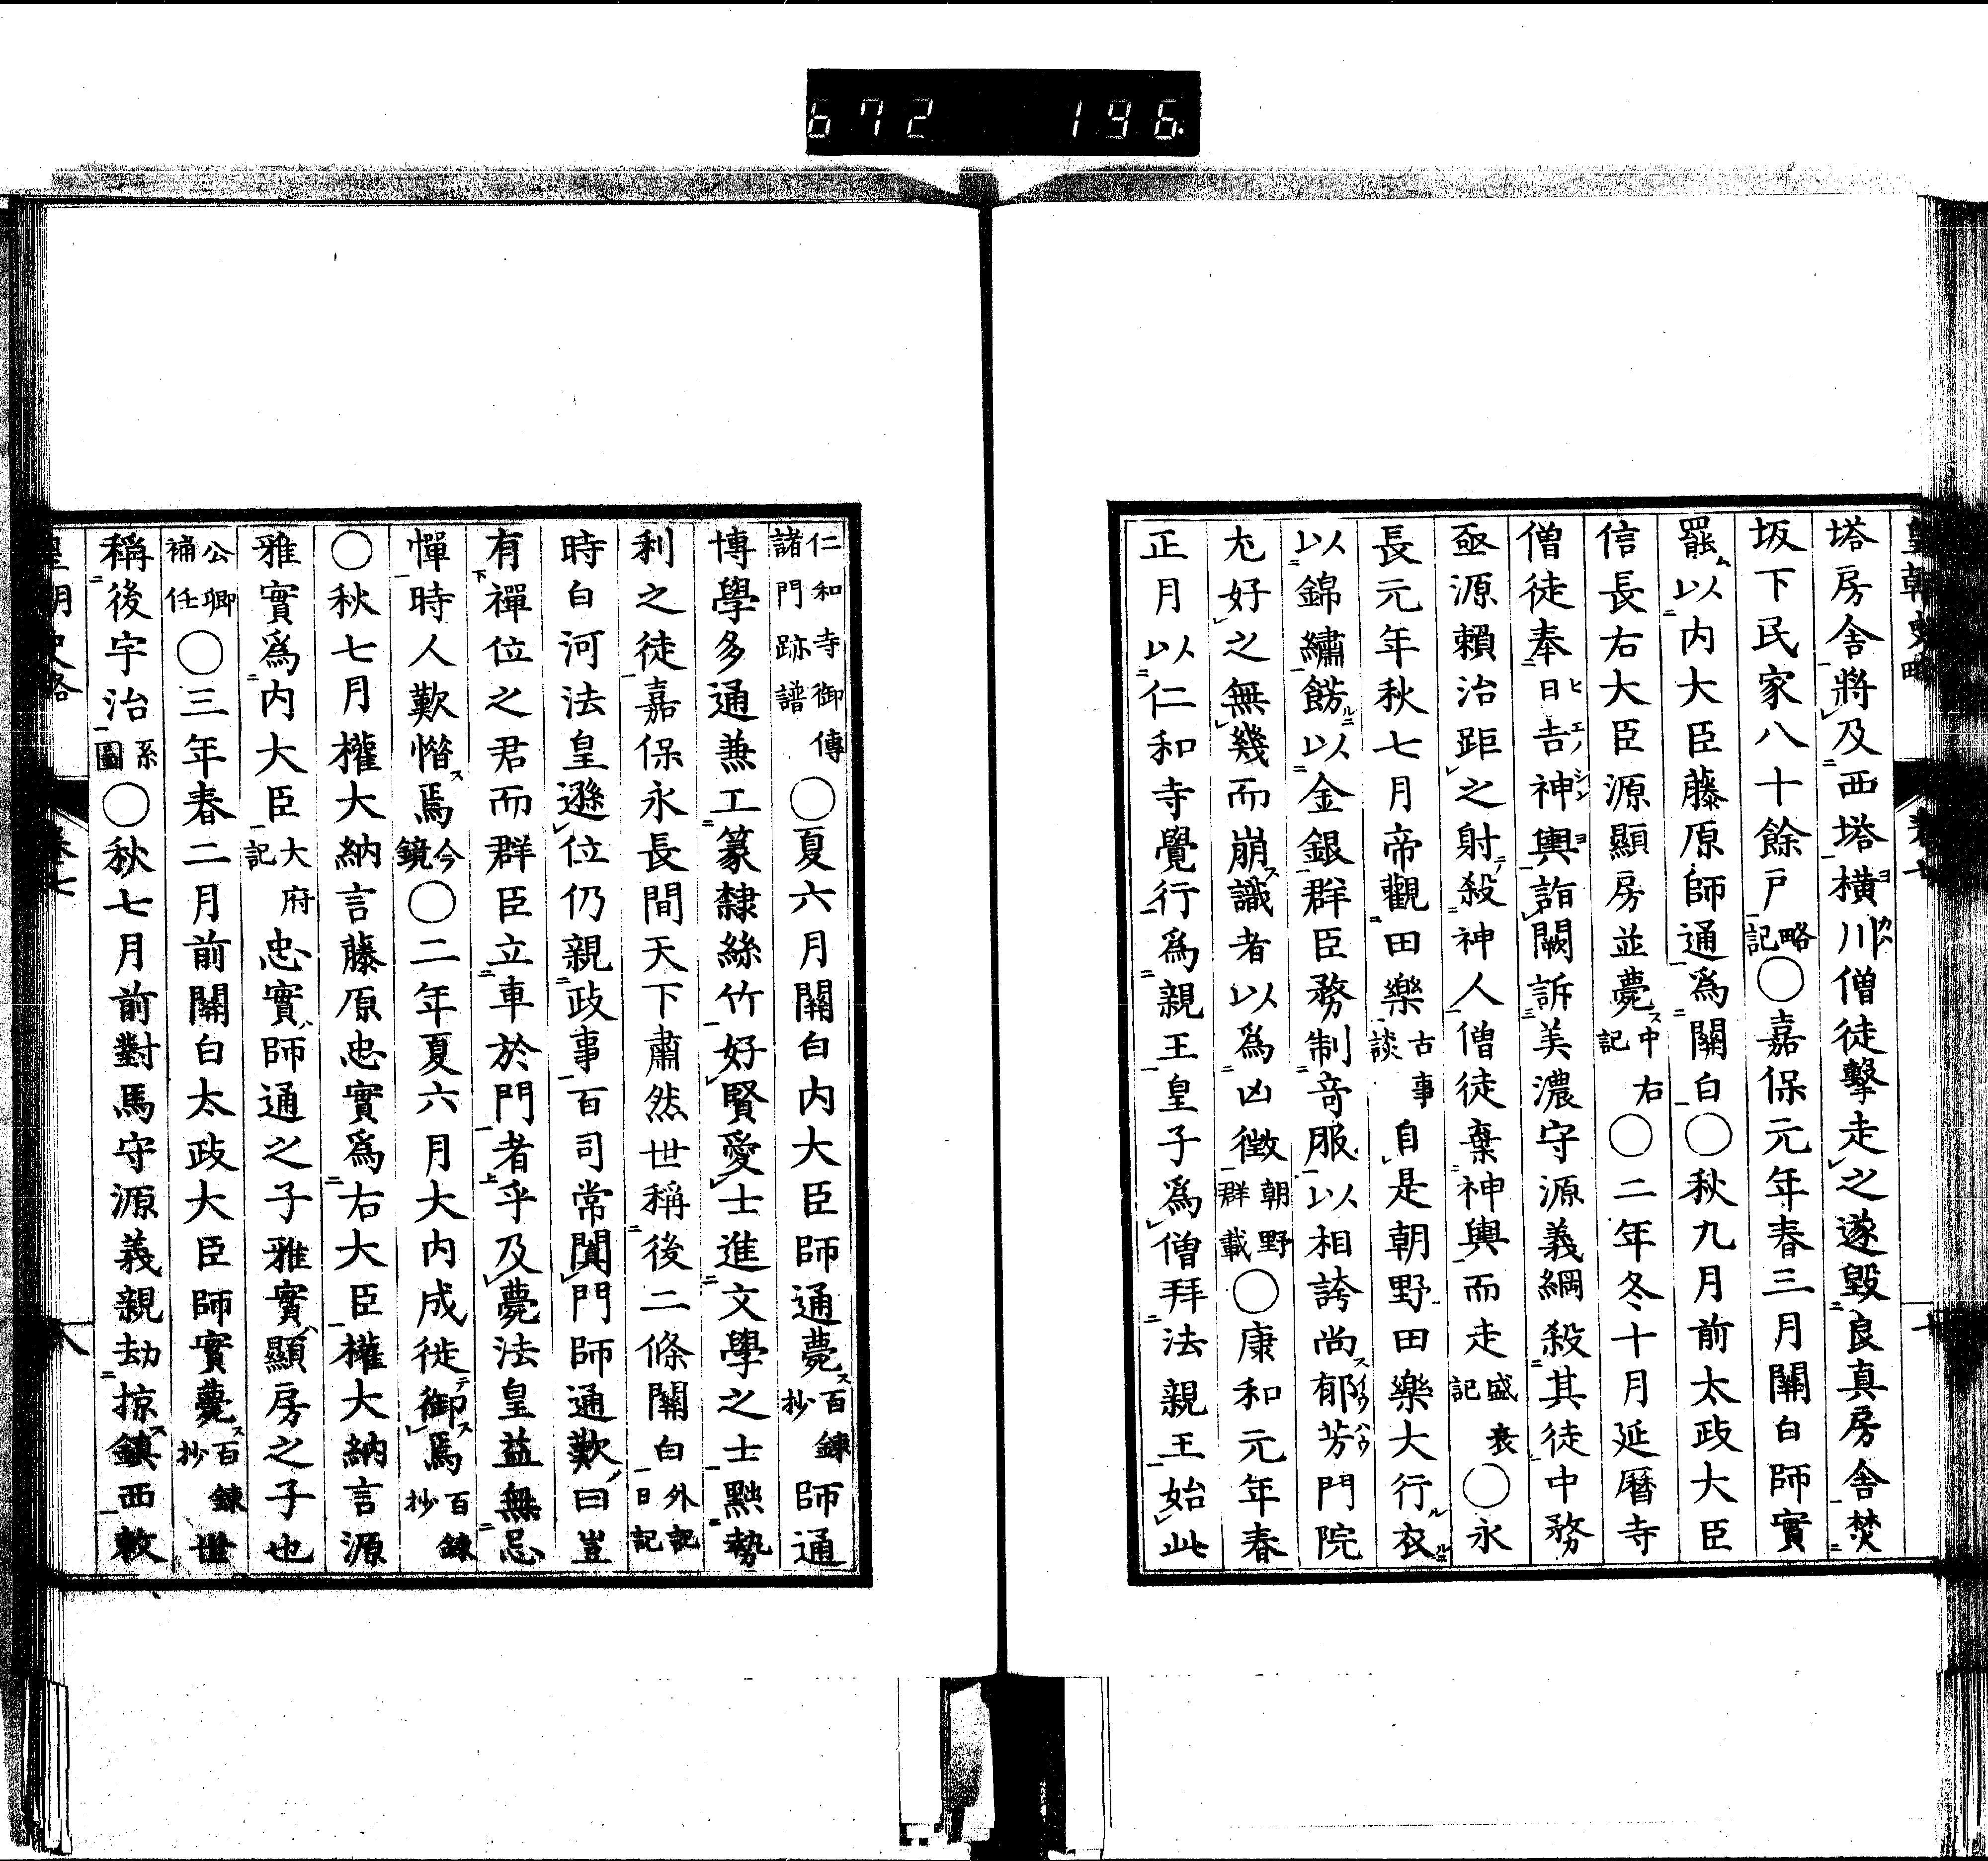 672 196
塔房舎將及西塔橫川僧徒擊走之遂毀良真房舎焚
坂下民家八十餘戸略記○嘉保元年春三月關白師實
罷以内大臣藤原師通爲關白○秋九月前太政大臣
信長右大臣源顯房並薨中右記○二年冬十月延曆寺
僧徒奉日吉神輿詣闕訴美濃守源義綱殺其徒中務
亟源賴治距之射殺神人僧徒棄神輿而走盛衰記○永
長元年秋七月帝觀田樂古事談自是朝野田樂大行衣
以錦繡餝以金銀群臣務制竒服以相誇尚郁芳門院
尤好之無幾而崩識者以爲凶徴朝野群載○康和元年春
正月以仁和寺覺行爲親王皇子爲僧拜法親王始此
仁和寺御傳諸門跡譜○夏六月關白内大臣師通薨百鍊抄師通
博學多通兼工篆隸絲竹好賢愛士進文學之士黜勢
利之徒嘉保永長間天下肅然世稱後二條關白外記日記
時白河法皇遜位仍親政事百司常闐門師通歎曰豈
有禪位之君而群臣立車於門者乎及薨法皇益無忌
憚時人歎惜焉今鏡○二年夏六月大内成徙御焉百鍊抄
○秋七月權大納言藤原忠實爲右大臣權大納言源
雅實爲内大臣大府記忠實師通之子雅實顯房之子也
公卿補任○三年春二月前關白太政大臣師實薨百鍊抄世
稱後宇治系圖○秋七月前對馬守源義親劫掠鎮西敕